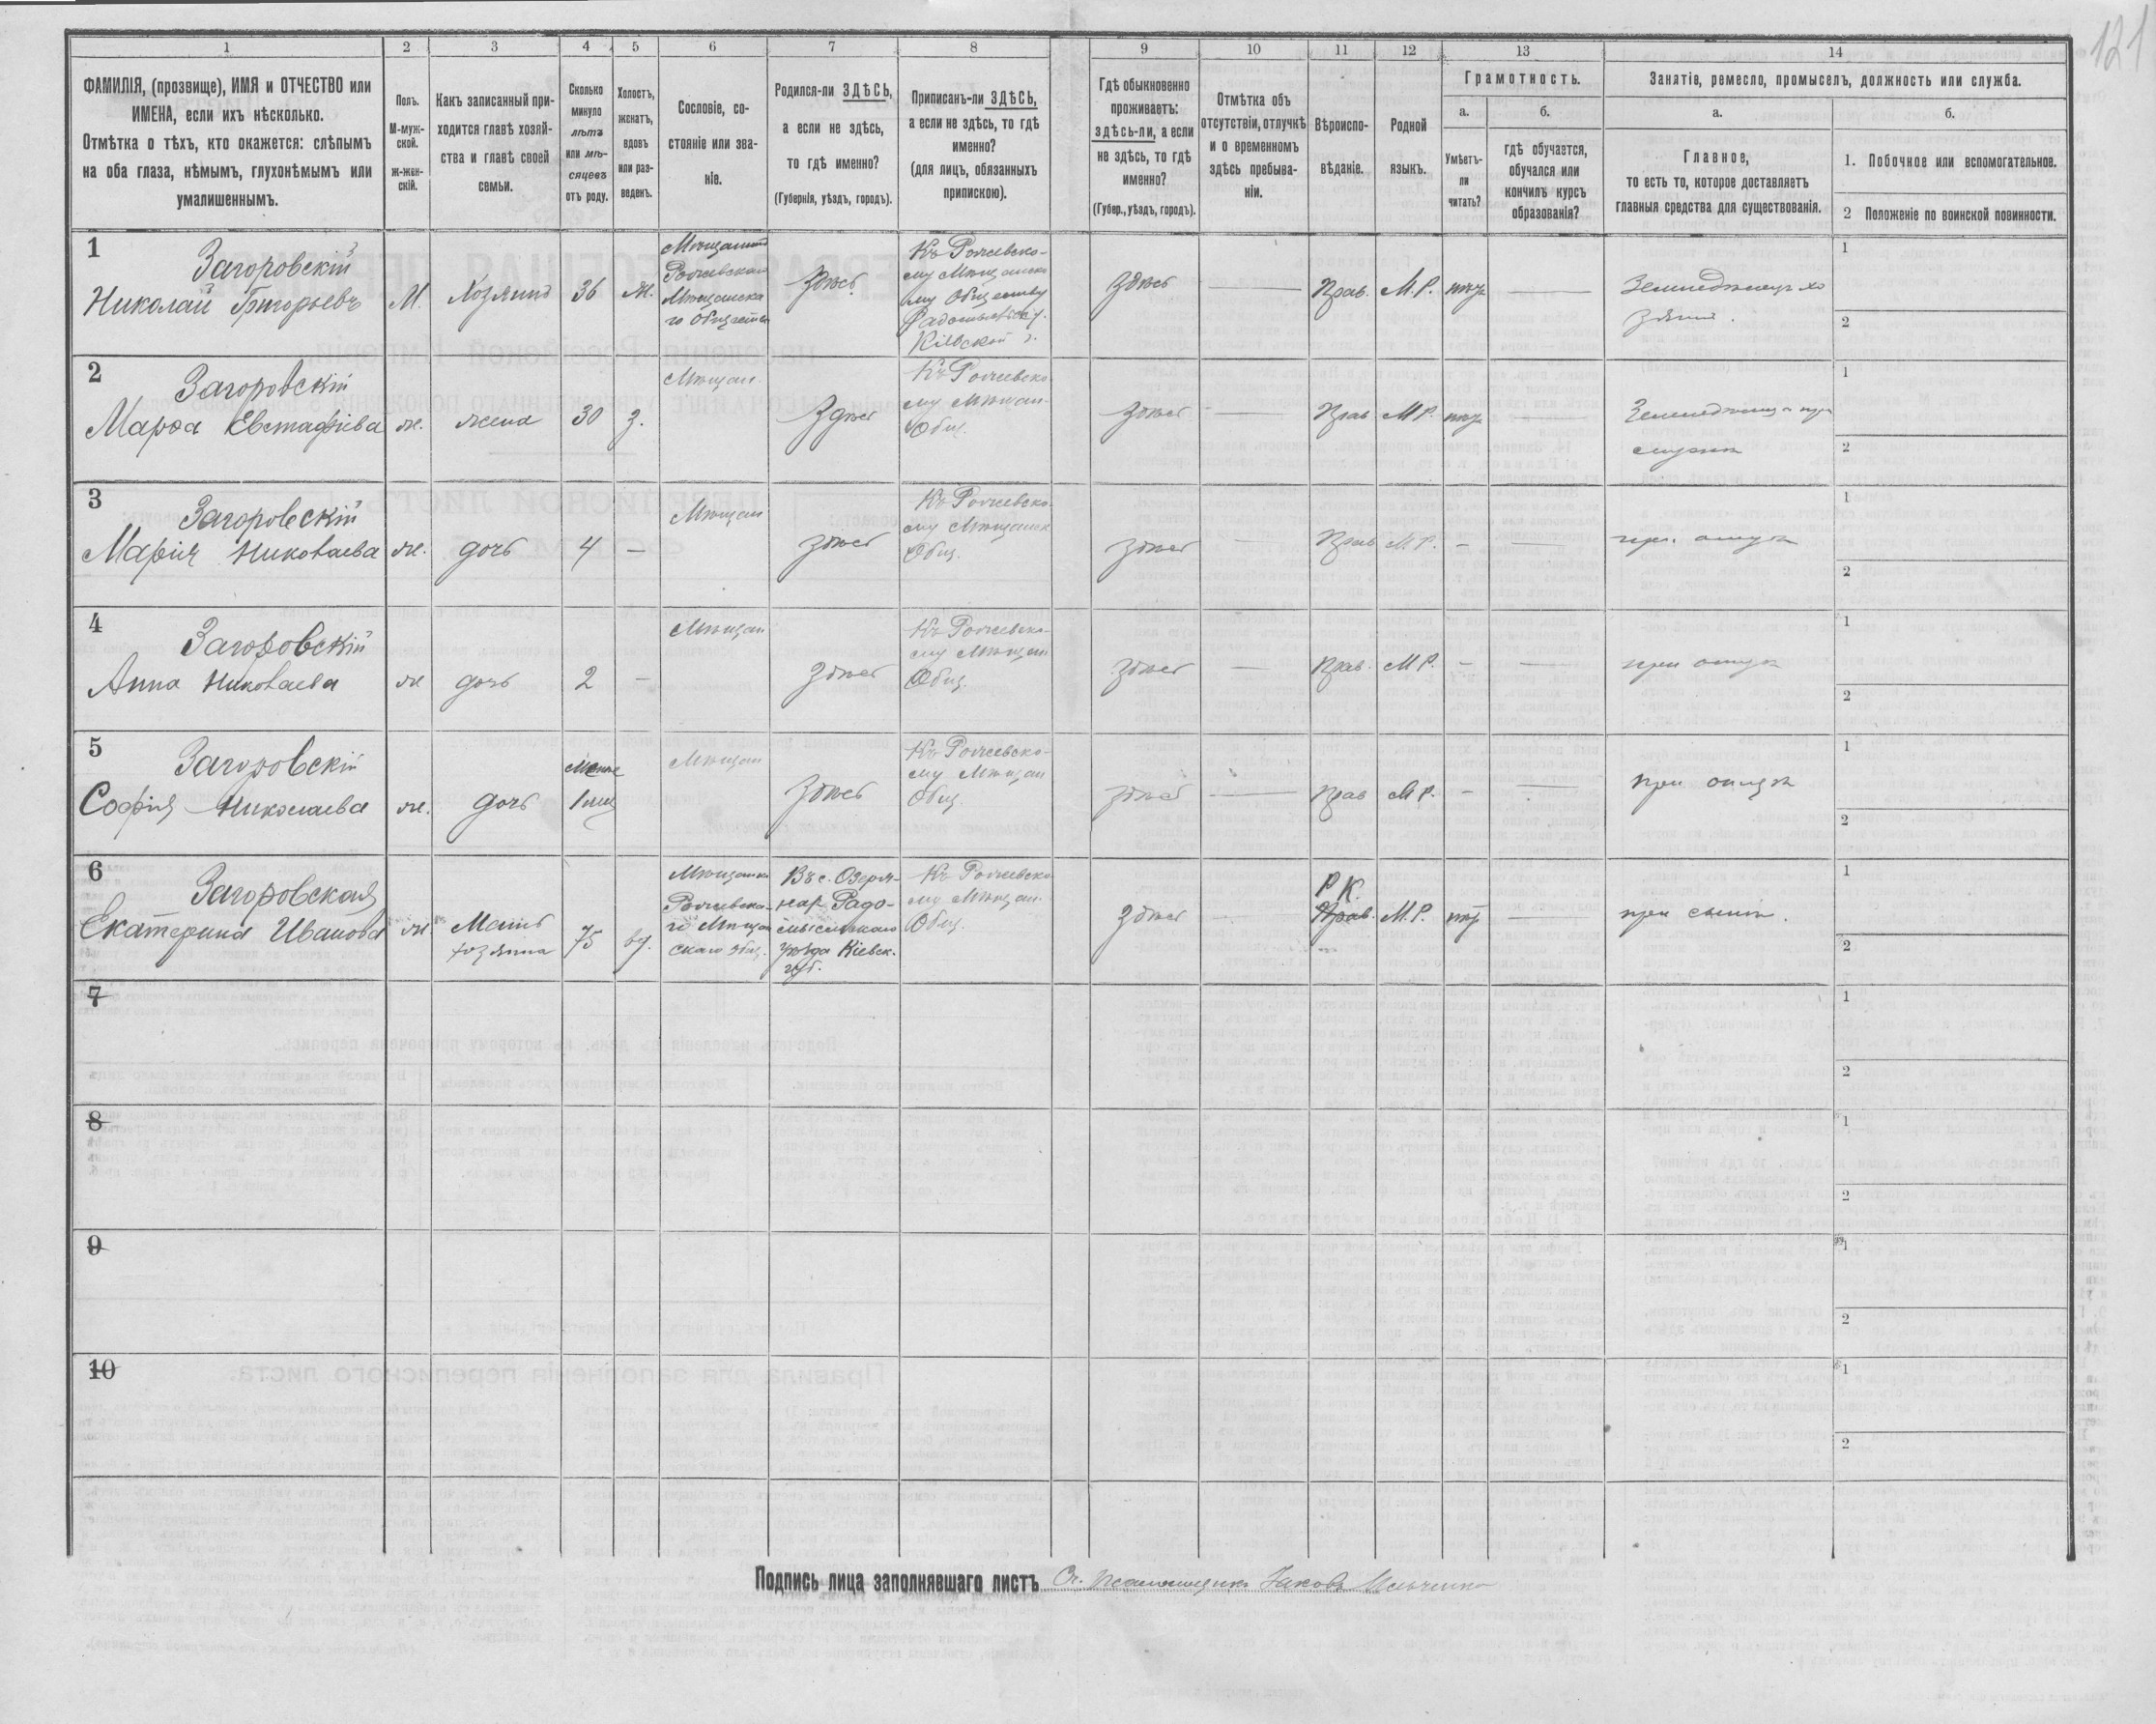 121
1 2 3 4 5 6 7 8 9 10 11 12 13 14
ФАМИЛІЯ, (прозвище), ИМЯ и ОТЧЕСТВО или
ИМЕНА, если ихъ нѣсколько.
Отмѣтка о тѣхъ, кто окажется: слѣпымъ
на оба глаза, нѣмымъ, глухонѣмымъ или
умалишеннымъ.
Полъ.
М-муж-
ской.
ж-жен-
скій.
Какъ записанный при-
ходится главѣ хозяй-
ства и главѣ своей
семьи.
Сколько
минуло
лѣтъ
или мѣ-
сяцевъ
отъ роду.
Холостъ,
женатъ,
вдовъ
или раз-
веденъ.
Сословіе, со-
стояніе или зва-
ніе.
Родился-ли ЗДѢСЬ,
а если не здѣсь,
то гдѣ именно?
(Губернія, уѣздъ, городъ).
Приписанъ-ли ЗДѢСЬ,
а если не здѣсь, то гдѣ
именно?
(для лицъ, обязанныхъ
припискою).
Гдѣ обыкновенно
проживаетъ:
здѣсь-ли, а если
не здѣсь, то гдѣ
именно?
(Губер., уѣздъ, городъ).
Отмѣтка объ
отсутствіи, отлучкѣ
и о временномъ
здѣсь пребыва-
ніи.
Вѣроиспо-
вѣданіе.
Родной
языкъ.
Грамотность.
а.
Умѣетъ-
ли
читать?
б.
гдѣ обучается,
обучался или
кончилъ курсъ
образованія?
Занятіе, ремесло, промыселъ, должность или служба.
а.
Главное,
то есть то, которое доставляетъ
главныя средства для существованія.
б.
1. Побочное или вспомогательное.
2 Положеніе по воинской повинности.
1
Загоровскій
Николай Григорьевъ
М.
Хозяинъ
36
Ж.
Рожевскаго
Мѣщанска
го Общества
Здѣсь
Къ Рожевско-
му Мѣщанско
му Обществу
Радомысльск. у.
Кіевской г.
Здѣсь
Прав.
М.Р.
1
2
2
Загоровскій
Марѳа Евстафіева
ж.
жена
30
з.
Мѣщан.
Здѣсь
Къ Рожевско
му Мѣщан.
Общ.
Здѣсь
Прав
М.Р.
1
2
3
Загоровскій
Марія Николаева
ж.
дочь
4
—
Мѣщан
здѣсь
Къ Рожевско-
му Мѣщанск
Общ.
здѣсь
Прав
М.Р.
—
при отцѣ
1
2
4
Загоровскій
Анна Николаева
ж
дочь
2
—
Мѣщан
здѣсь
Къ Рожевско-
му Мѣщан
Общ.
здѣсь
Прав.
М.Р.
—
при отцѣ
1
2
5
Загоровскій
Софія Николаева
ж.
дочь
Менѣе
1 мѣс
Мѣщан
здѣсь
Къ Рожевско-
му Мѣщан
Общ.
здѣсь
Прав
М.Р.
—
при отцѣ
1
2
6
Загоровская
Екатерина Иванова
ж
Мать
хозяина
75
вд.
Мѣщанка
скаго общ.
Въ с. Озеря-
нах Радо-
мысльскаго
уѣзда Кіевск.
губ.
Къ Рожевско
му Мѣщан.
Общ.
здѣсь
Р К.
Прав.
М.Р.
при сынѣ.
1
2
7
1
2
8
1
2
9
1
2
10
1
2
Подпись лица заполнявшаго листъ Сч. Псаломщикъ Іаковъ